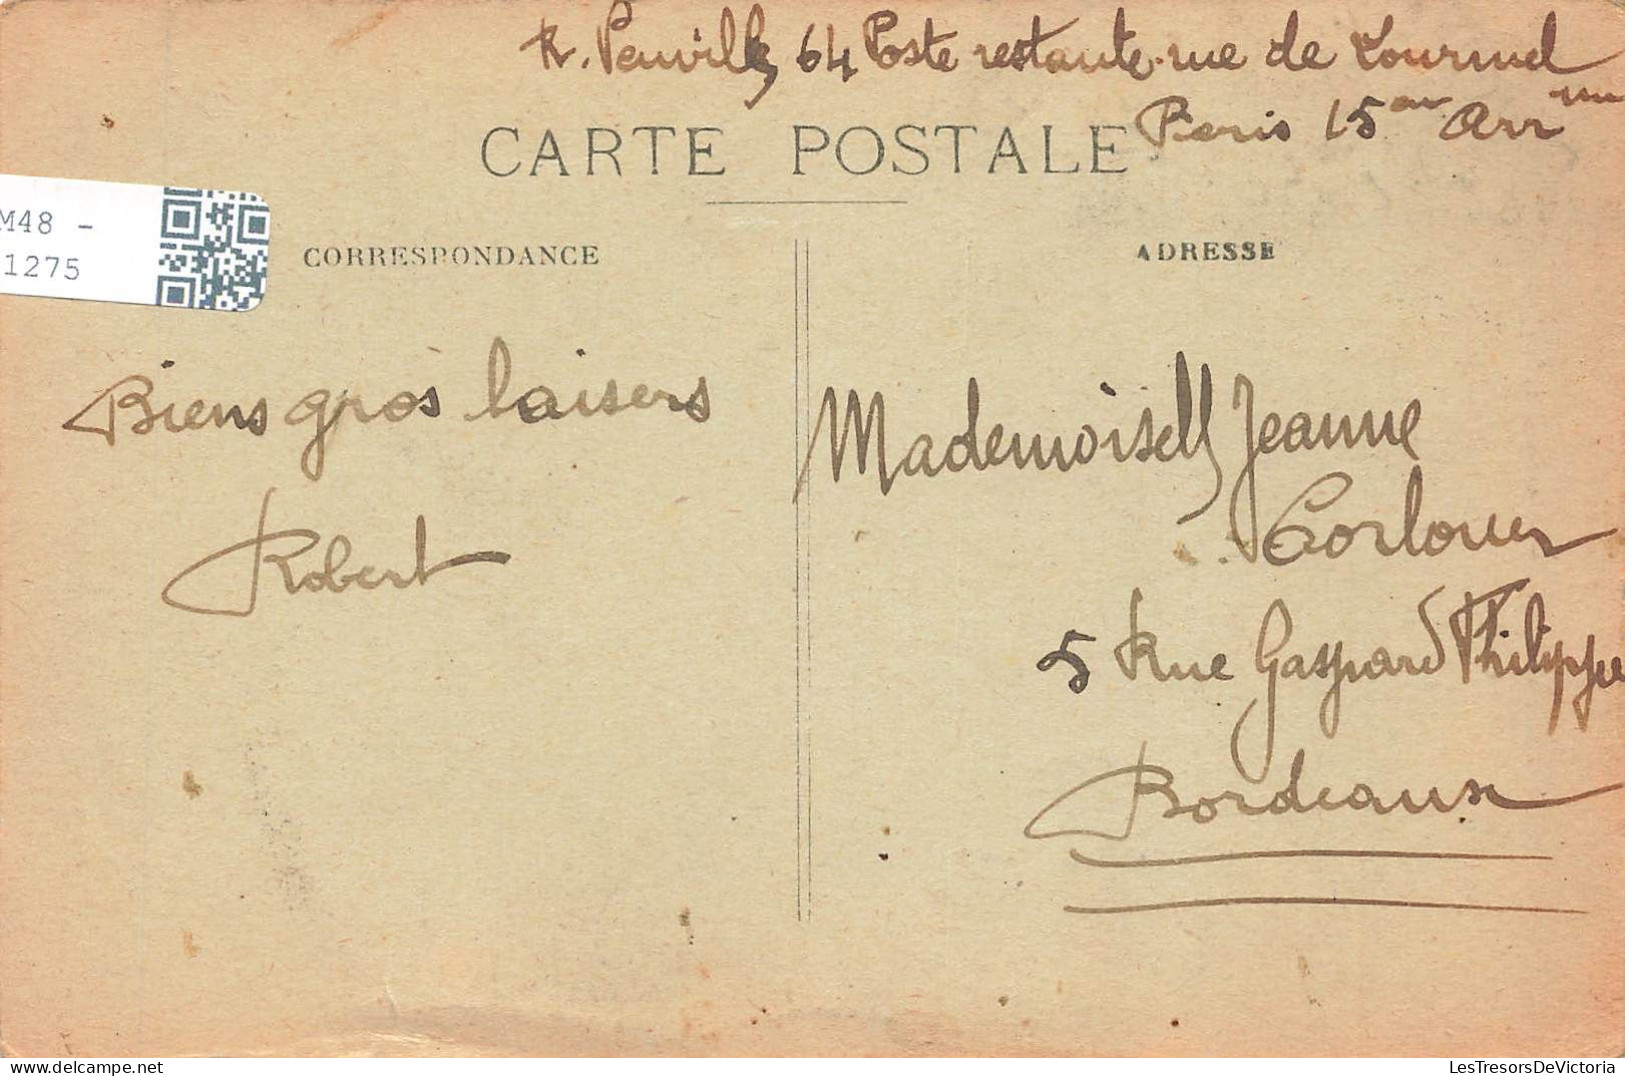 R. Peuville, 64 Poste restante rue de Lourmel
Paris 15em Arrnm
CARTE POSTALE
M48 -
1275
CORRESPONDANCE
ADRESSE
Biens gros baisers
Robert
Mademoiselle Jeanne
Corlouer
5 Rue Gaspard Philippe
Bordeaux
LesTresorsDeVictoria